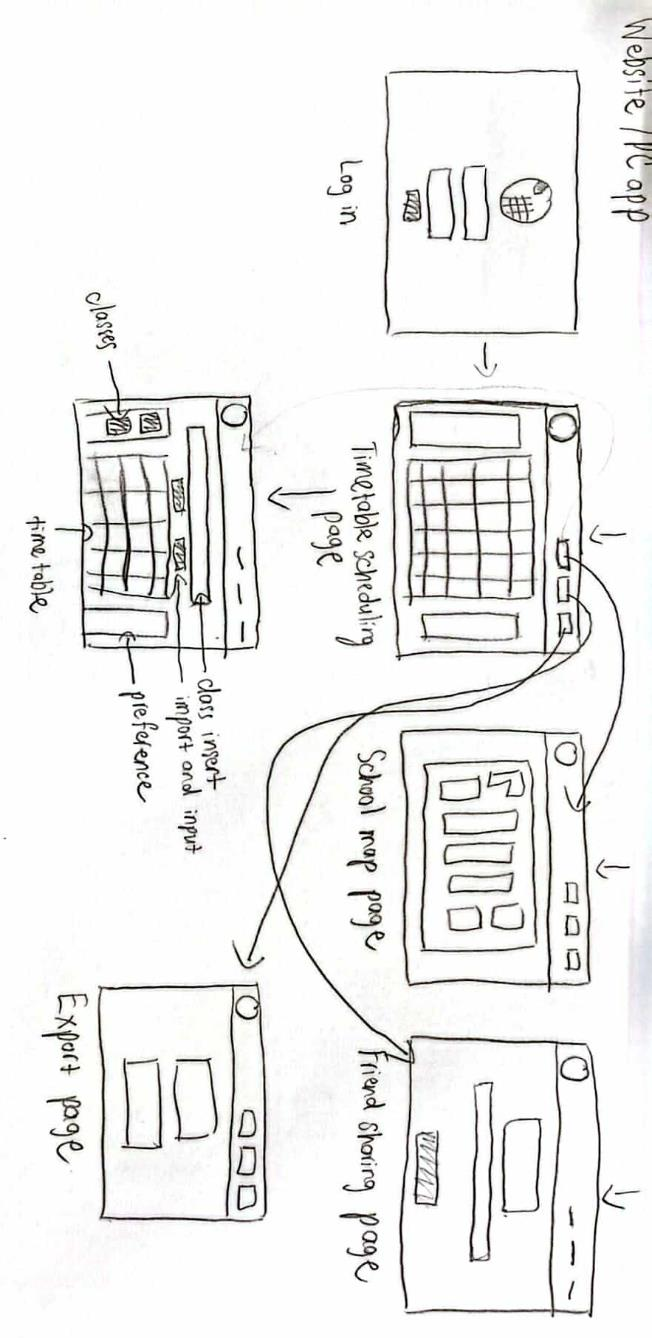 Website / PC app
Log in
Timetable scheduling
page
School map page
Friend sharing page
classes
time table
class insert
import and input
preference
Export page